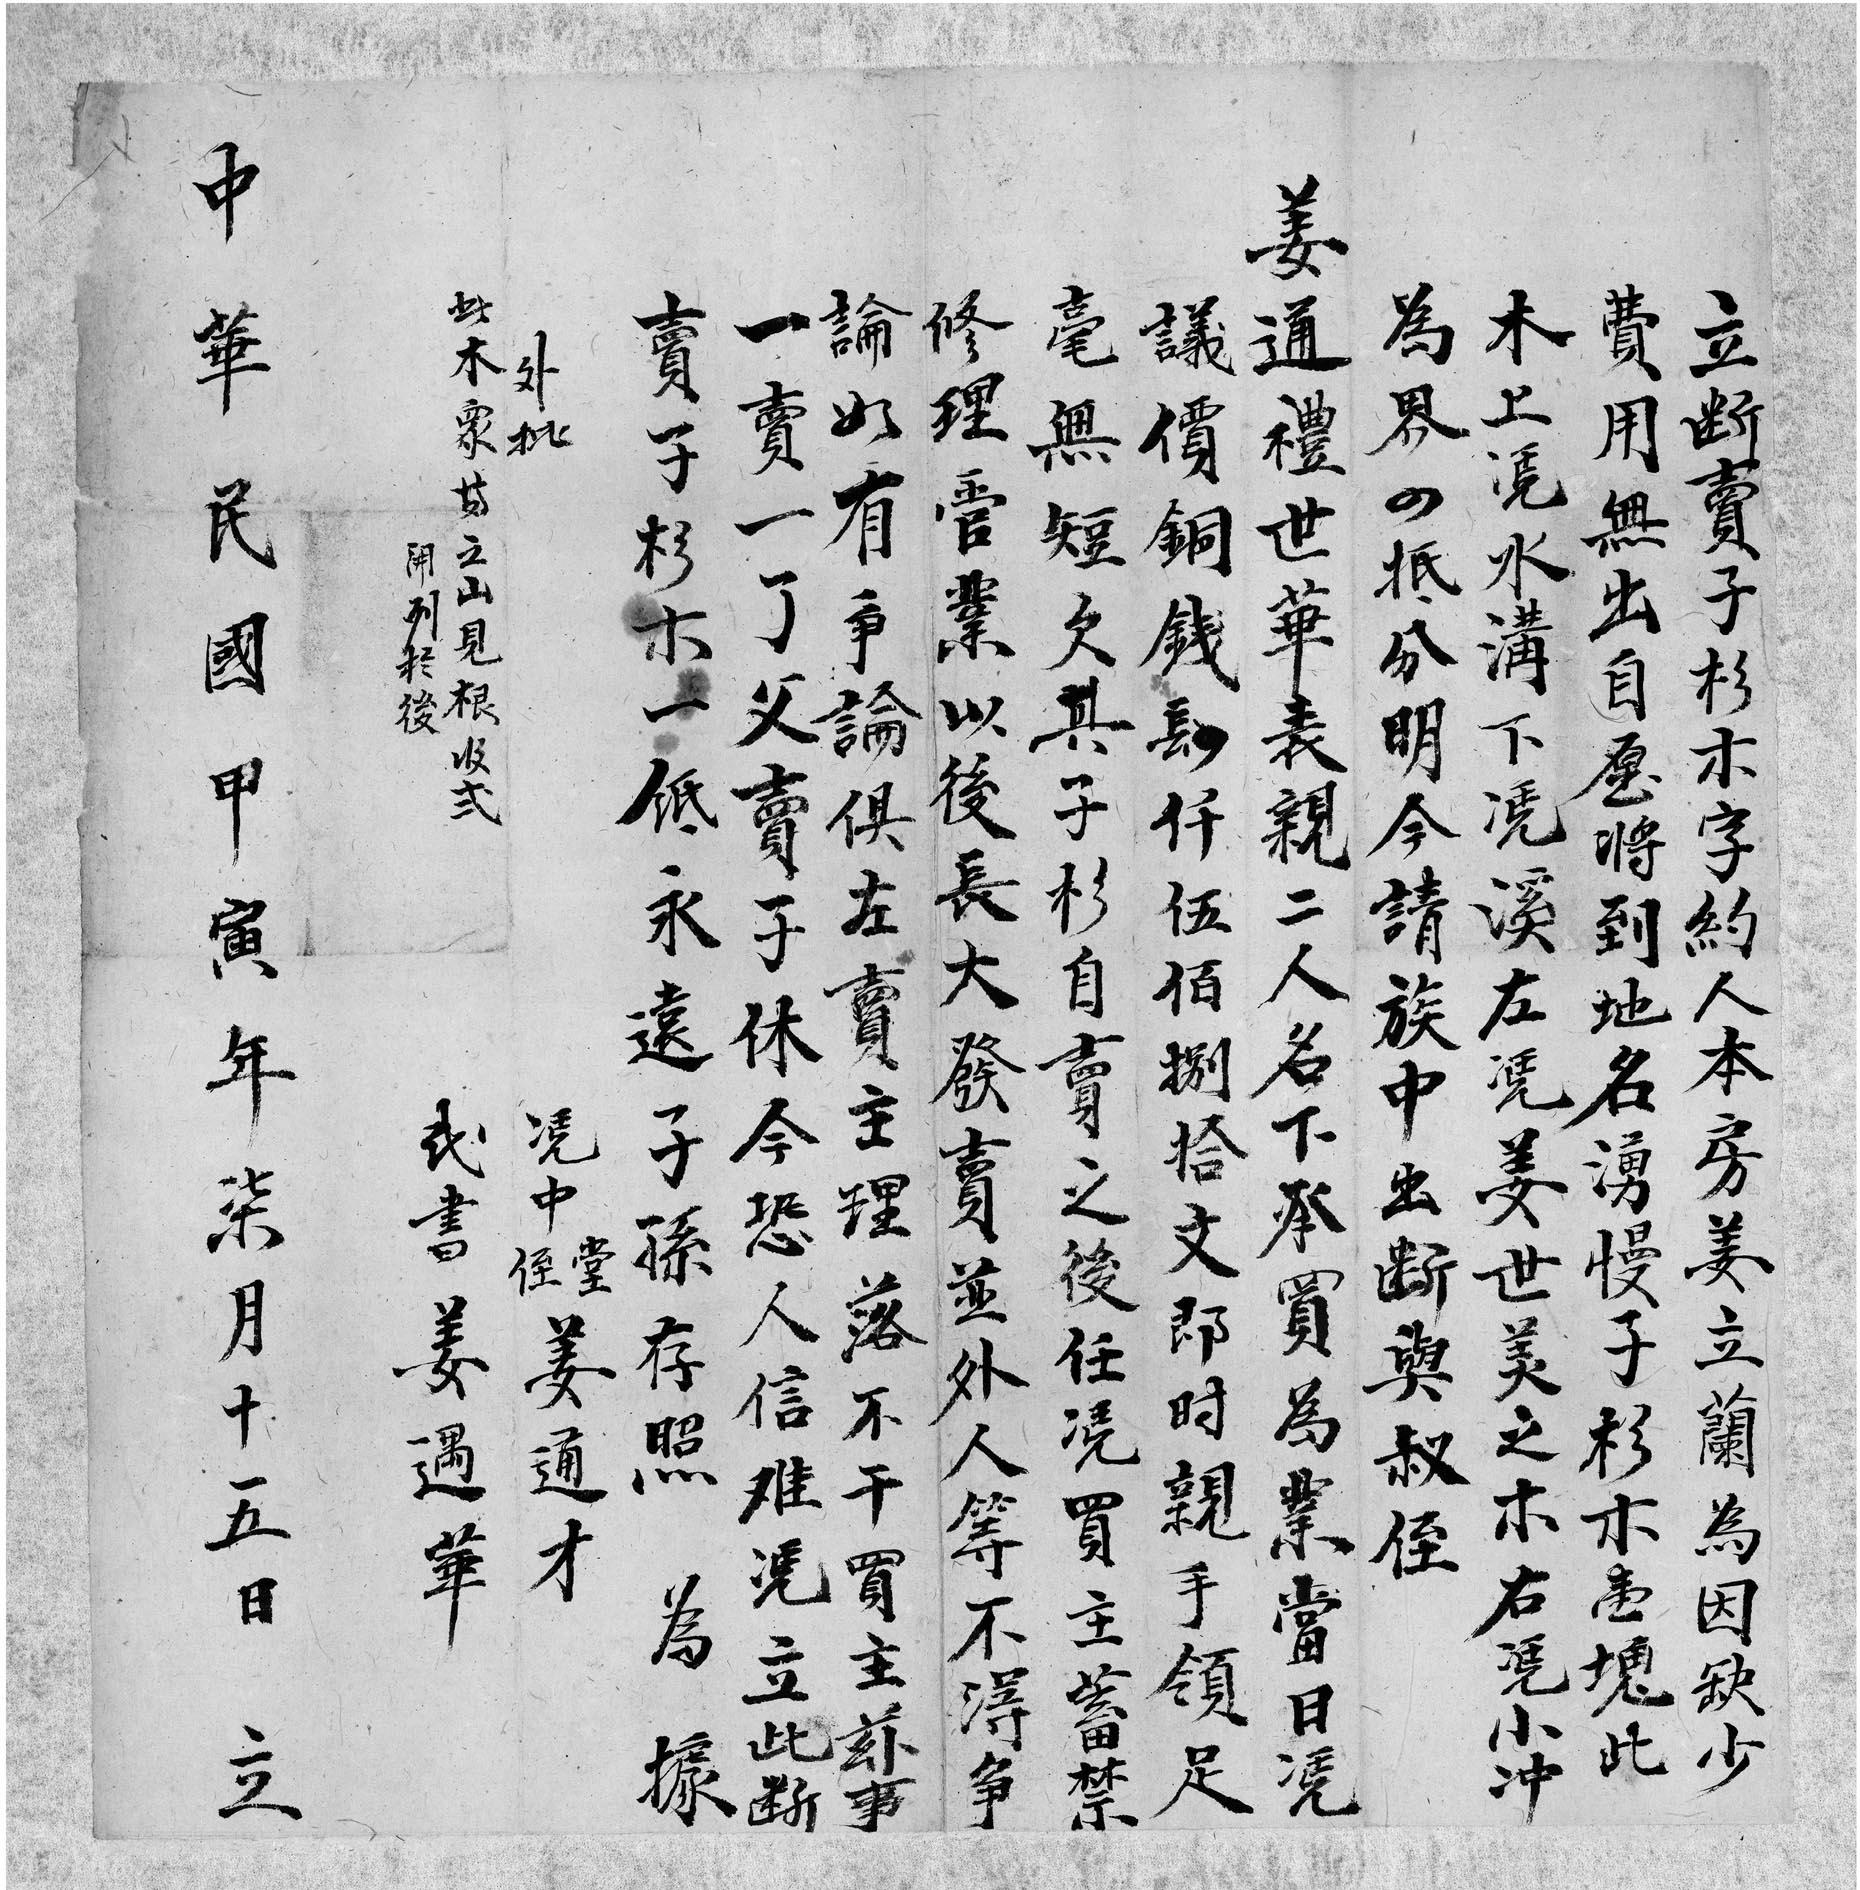 立断賣子杉木字約人本房姜立蘭為因缺少
費用無出自愿將到地名湧慢子杉木壹塊此
木上凴水溝下凴溪左凴姜世美之木右凴小冲
為界四抵分明今請族中出断與叔侄
姜通禮世華表親二人名下承買為業當日凴
議價銅錢肆仟伍佰捌拾文即时親手領足
毫無短欠其子杉自賣之後任凴買主蓄禁
修理管業以後長大發賣並外人等不淂争
論如有争論俱在賣主理落不干買主茲事
一賣一了父賣子休今恐人信难凴立此断
賣子杉木一紙永遠子孫存照 為 據
外批
此木衆 之山見根收弍
開列於後
凴中堂侄姜通才
代書姜遇華
中華民國甲寅年柒月十五日 立